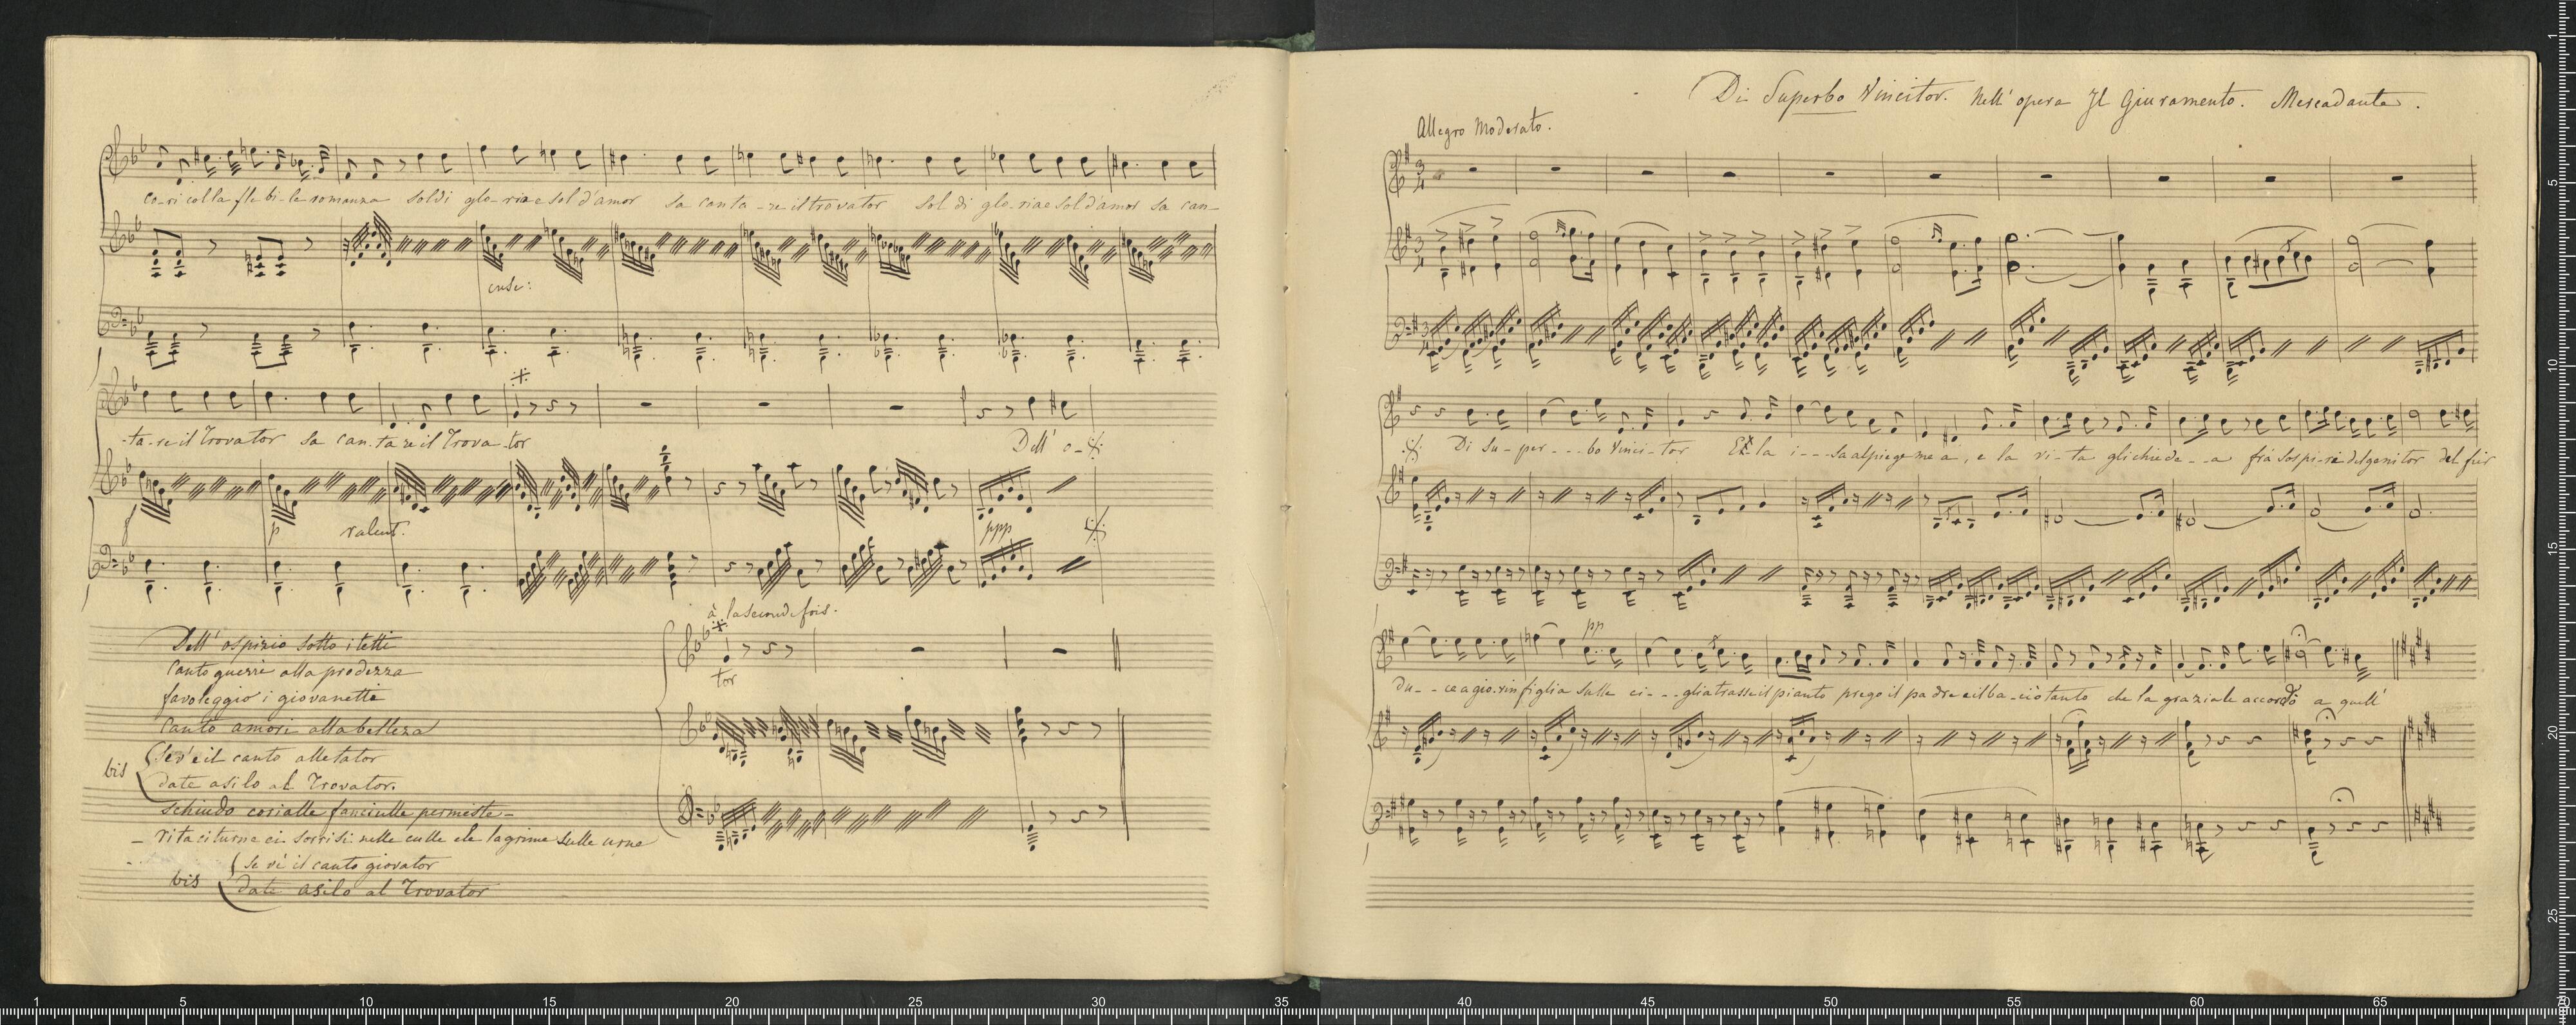 co-ri colla fle-bi-le romanza sol di glo-ria e sol d'amor sa canta-re il trovator sol di glo-ria e sol d'amor sa can-
-ta-re il Trovator sa can-ta-re il Trova-tor Dell' o-
f p ralent. ppp
à la seconde fois.
tor
Dell' ospizio sotto i tetti
Canto guerre alla prodezza
favoleggio i giovanetti
Canto amori alla bellezza
bis Se v'è il canto alletator
date asilo al Trovator.
schiudo cosi alle fanciulle
se vi il canto giovator
bis date asilo al Trovator
Di Superbo Vincitor. Nell' opera Il Giuramento. Mercadante.
Allegro Moderato.
3/4
Di Su-per---bo Vinci-tor Ella i---sa al pie geme a, e la vi-ta gli chiede--a fra sospi-ri del genitor del fir
pp
du--ce a gio. rin figlia Sulle ci--glia trasse il pianto prego il padre e il ba-ciò tanto che la grazia le accordò a quell'
1 5 10 15 20 25 30 35 40 45 50 55 60 65 70
1 5 10 15 20 25